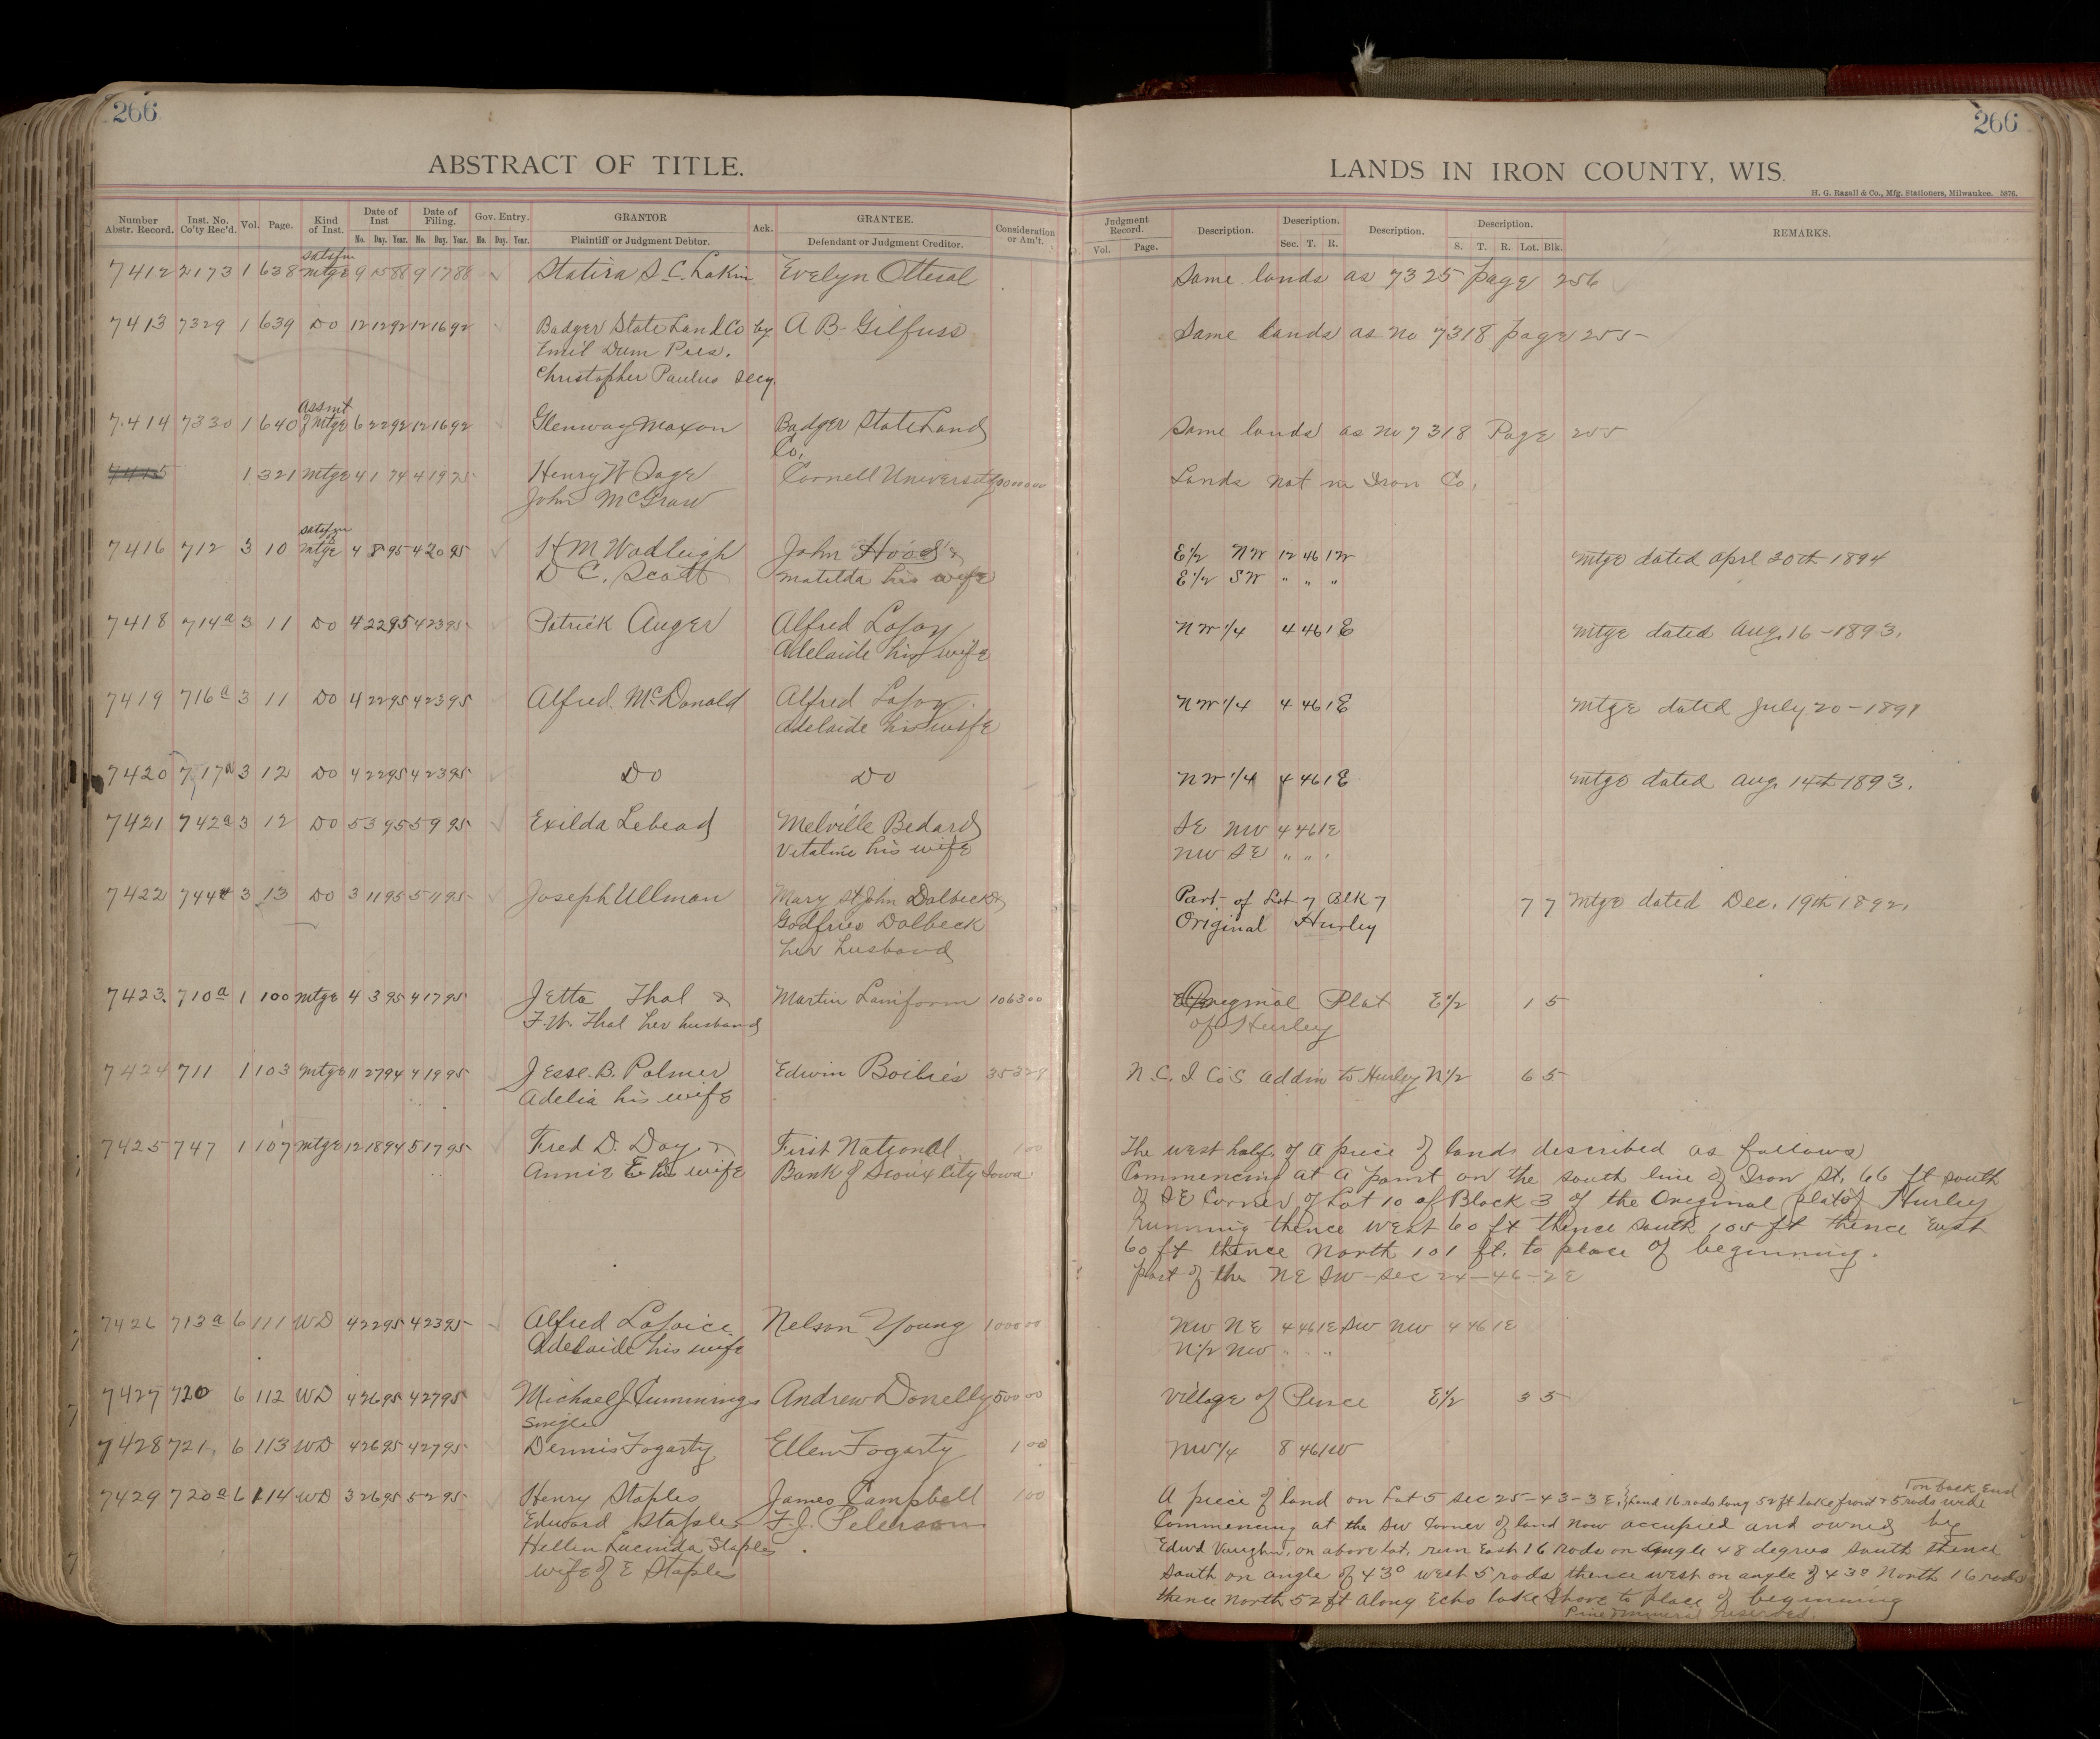 266
266
ABSTRACT OF TITLE.
LANDS IN IRON COUNTY, WIS.
H. G. Razall & Co., Mfg. Stationers, Milwaukee. 5876.
Number Abstr. Record. Inst. No. Co'ty Rec'd. Vol. Page. Kind of Inst. Date of Inst Date of Filing. Gov. Entry. GRANTOR Ack. GRANTEE. Consideration or Am't. Judgment Record. Description. Description. Description. Description. REMARKS.
Mo. Day. Year. Mo. Day. Year. Mo. Day. Year. Plaintiff or Judgment Debtor. Defendant or Judgment Creditor. Vol. Page. Sec. T. R. S. T. R. Lot. Blk.
satsfn
7412 2173 1 638 mtge 9 15 88 9 17 88 Statira S. C. Lakin Evelyn Otteral Same lands as 7325 page 256
7413 7329 1 639 Do 12 12 92 12 16 92 Badger State Land Co by A B. Gilfuss Same lands as no 7318 page 255
Emil Dum Pres.
Christopher Paulus Secy.
Assmt
7414 7330 1 640 of mtge 6 22 92 12 16 92 Glenway Maxon Badger State Land Same lands as no 7318 Page 255
Co.
1 321 mtge 4 1 74 4 19 75 Henry W Sage Cornell University Lands not in Iron Co.
John McGraw
satsfn
7416 712 3 10 mtge 4 8 95 4 20 95 H M Wadleigh John Hood & E 1/2 NW 12 46 1W mtge dated Aprl 30th 1894
D C. Scott Matilda his wife E 1/2 SW " " "
7418 714a 3 11 Do 4 22 95 4 23 95 Patrick Auger Alfred LaJoy NW 1/4 4 46 1 E mtge dated Aug. 16-1893.
Adelaide his wife
7419 716a 3 11 Do 4 22 95 4 23 95 Alfred McDonald Alfred LaJoy NW 1/4 4 46 1 E mtge dated July 20-1891
Adelaide his wife
7420 717a 3 12 Do 4 22 95 4 23 95 Do Do NW 1/4 4 46 1 E mtge dated Aug. 14th 1893.
7421 742a 3 12 Do 5 3 95 5 9 95 Exilda Lebead Melville Bedard SE NW 4 46 1E
Vitaline his wife NW SE " " "
7422 744 3 13 Do 3 11 95 5 11 95 Joseph Ullman Mary St John Dalbeck & Part of Lot 7 Blk 7 7 7 Mtge dated Dec. 19th 1892.
Godfries Dalbeck Original Hurley
her husband
7423. 710a 1 100 mtge 4 3 95 4 17 95 Jetta Thal & Martin Lamform 1063 00 Original Plat E 1/2 1 5
F. W. Thal her husband of Hurley
7424 711 1 103 mtge 11 27 94 4 19 95 Jesse B. Palmer Edwin Boilies 353 28 N. C. I Co's addin to Hurley N 1/2 6 5
Adelia his wife
7425 747 1 107 mtge 12 18 94 5 17 95 Fred D. Day & First National 1 00 The west half of a piece of lands described as follows
Annie E his wife Bank of Sioux City Iowa Commencing at a point on the south line of Iron St. 66 ft south
of SE Corner of Lot 10 of Block 3 of the Original plat of Hurley
running thence West 60 ft thence South 105 ft thence East
60 ft thence North 101 ft. to place of beginning.
part of the NE SW - sec 24-46-2E
7426 713a 6 111 WD 4 22 95 4 23 95 Alfred LaJoice Nelson Young 1000 00 NW NE 4 46 1E SW NW 4 46 1E
Adelaide his wife N 1/2 NW " " "
7427 720 6 112 WD 4 26 95 4 27 95 Michael J Cummings Andrew Donelly 500 00 Village of Pence E 1/2 3 5
Single
7428 721 6 113 WD 4 26 95 4 27 95 Dennis Fogarty Ellen Fogarty 1 00 NW 1/4 8 46 1W
on back End
7429 720a 6 114 WD 3 26 95 5 2 95 Henry Staples James Campbell 1 00 A piece of land on Lot 5 Sec 25-43-3 E. 16 rods long 52 ft lake front & 5 rods wide
Edward Staples F. J. Peterson Commencing at the SW Corner of land now occupied and owned by
Hellen Lucinda Staples Edwd Vaughn, on above lot, run East 16 Rods on angle 48 degrees South thence
wife of E Staples South on angle of 43° West 5 rods thence West on angle of 43° North 16 rods
thence North 52 ft along Echo lake Shore to place of beginning
Pine & mineral reserved